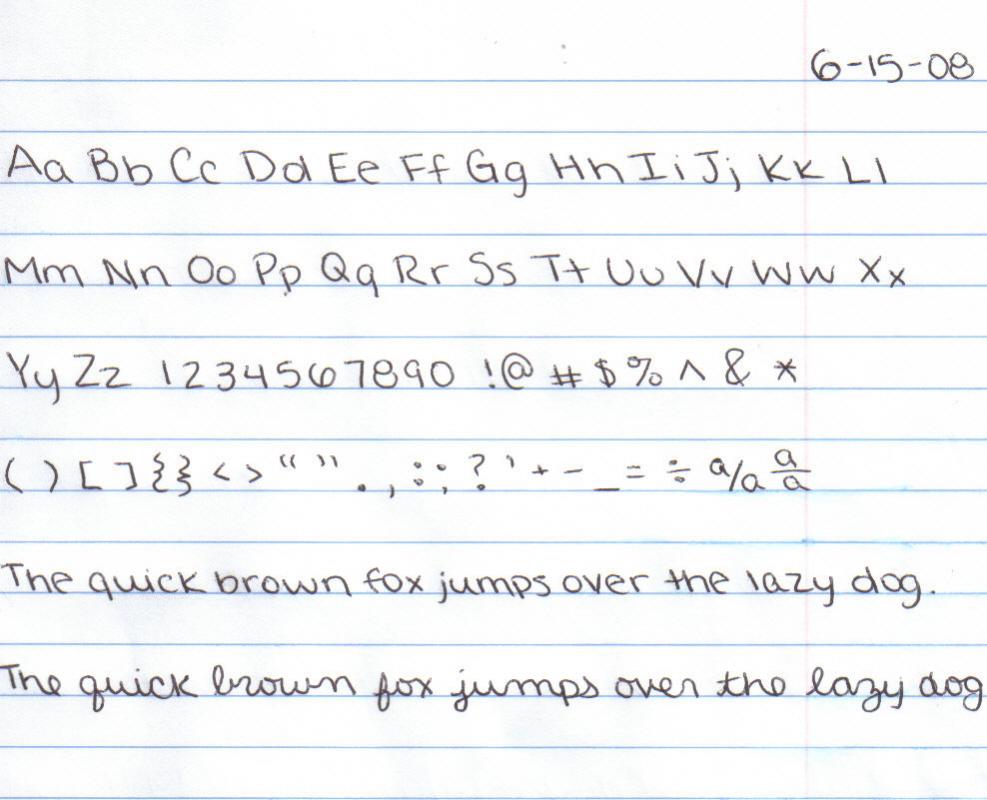 6-15-08
Aa Bb Cc Dd Ee Ff Gg Hh Ii Jj Kk Ll
Mm Nn Oo Pp Qq Rr Ss Tt Uu Vv Ww Xx
Yy Zz 1234567890 !@ # $ % ^ & *
( ) [ ] { } < > “ ” . , : ; ? ' + - _ = ÷ a/a a/a
The quick brown fox jumps over the lazy dog.
The quick brown fox jumps over the lazy dog